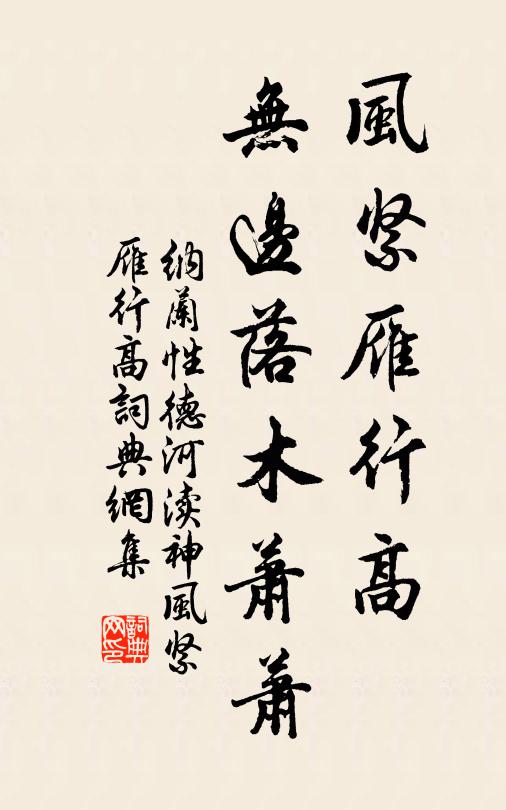 風紧雁行高
無邊落木蕭蕭
纳蘭性德河渎神風紧
雁行高詞典網集
詞典
网印